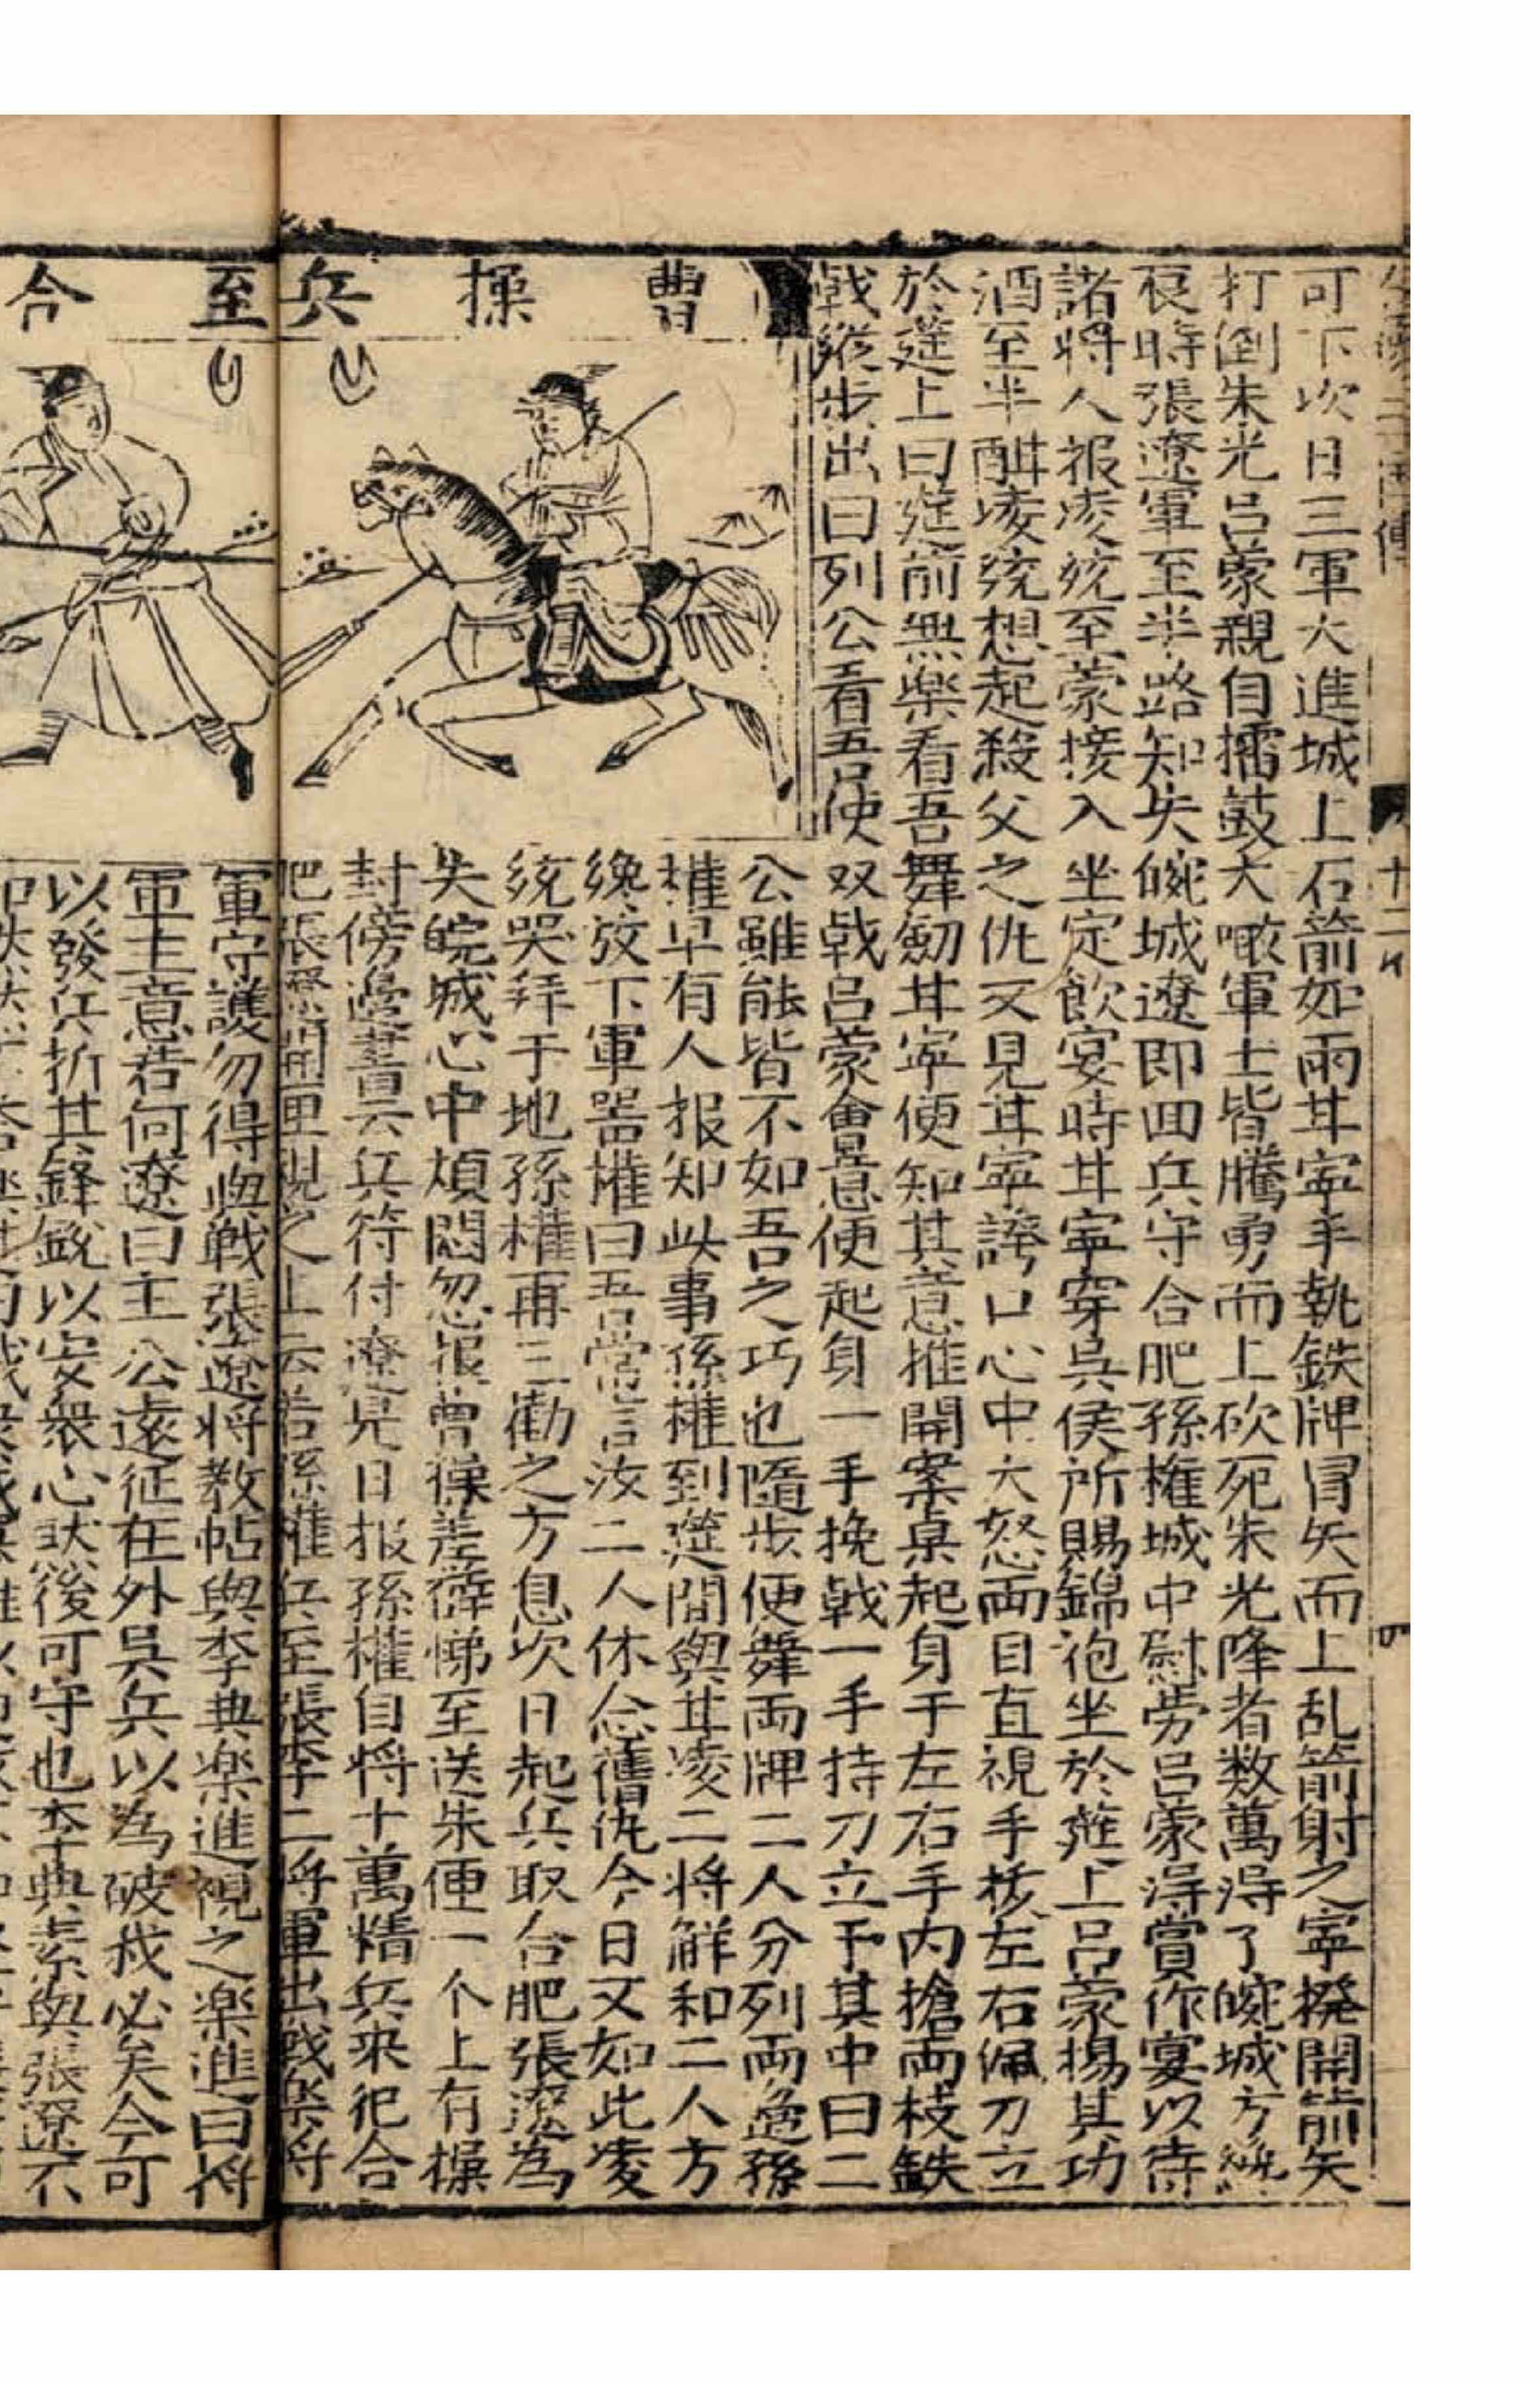 可下次日三軍大進城上石箭如雨甘寧手執鉄牌冒矢而上乱箭射之寧撥開箭矢
打倒朱光呂蒙親自擂鼓大喊軍士皆騰勇而上砍死朱光降者数萬淂了皖城方
辰時張遼軍至半路知失皖城遼即囬兵守合肥孫権城中慰劳呂蒙淂賞作宴以待
諸將人报凌統至蒙接入坐定飲宴時甘寧穿吳侯所賜錦袍坐於筵上呂蒙揚其功
酒至半酣凌統想起殺父之仇又見甘寧誇口心中大怒兩目直視手橃左右佩刀立
於筵上曰筵前無楽看吾舞劒甘寧便知其意推開案桌起身于左右手内搶兩枝鉄
戟縱步出曰列公看吾使双戟呂蒙會意便起身一手挽戟一手持刀立于其中曰二
公雖能皆不如吾之巧也隨步便舞兩牌二人分列兩邉孫
權早有人报知此事孫權到筵間與甘凌二将觧和二人方
纔放下軍噐權曰吾嘗言汝二人休念舊仇今日又如此凌
統哭拜于地孫權再三勸之方息次日起兵取合肥張遼為
失皖城心中煩悶忽报曹操差薛悌至送朱匣一个上有操
封傍邊書云兵符付遼見日报孫權自将十萬精兵來犯合
肥張遼開匣視之上云若孫權兵至張李二將軍出戦楽将
曹操兵至合
軍守護勿得與戦張遼将教帖與李典楽進視之楽進曰将
軍主意若何遼曰主公遠征在外吳兵以為破我必矣今可
以發兵折其鋒銳以安衆心狀後可守也李典素與張遼不
十二